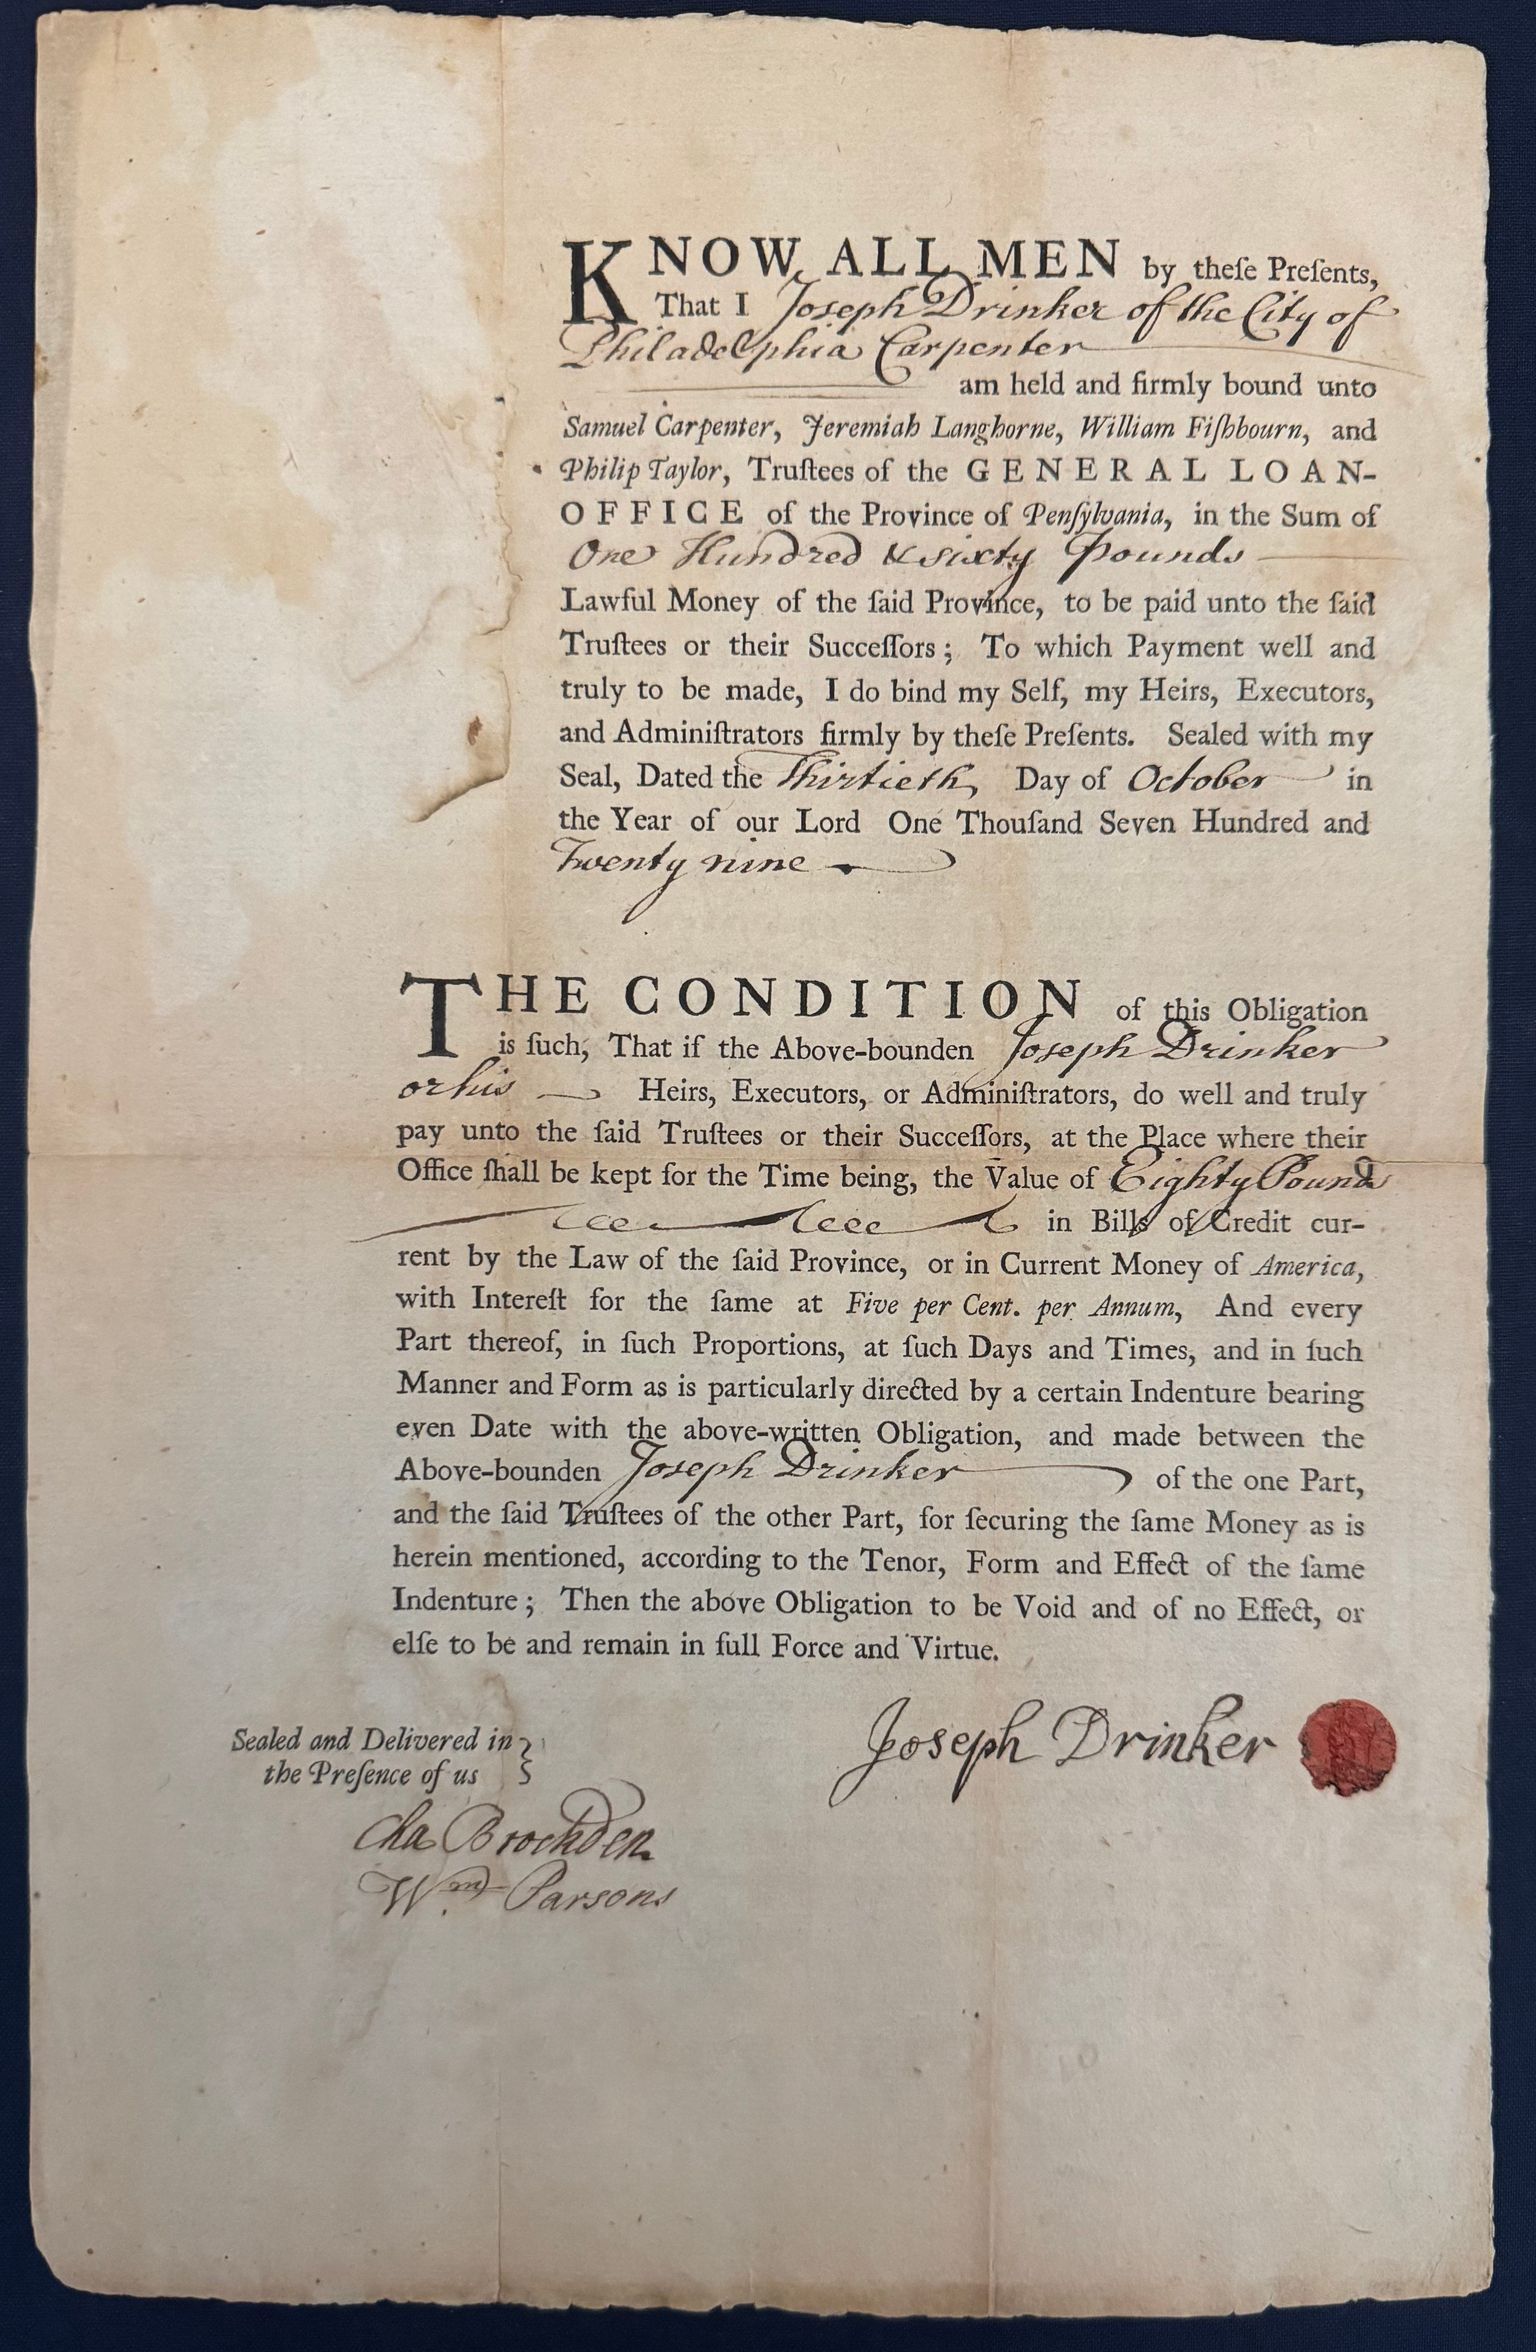 KNOW ALL MEN by theſe Preſents,
That I Joseph Drinker of the City of
Philadelphia Carpenter
am held and firmly bound unto
Samuel Carpenter, Jeremiah Langhorne, William Fiſhbourn, and
Philip Taylor, Truſtees of the GENERAL LOAN-
OFFICE of the Province of Penſylvania, in the Sum of
One Hundred & sixty Pounds
Lawful Money of the ſaid Province, to be paid unto the ſaid
Truſtees or their Succeſſors; To which Payment well and
truly to be made, I do bind my Self, my Heirs, Executors,
and Adminiſtrators firmly by theſe Preſents. Sealed with my
Seal, Dated the Thirtieth Day of October in
the Year of our Lord One Thouſand Seven Hundred and
Twenty nine
THE CONDITION of this Obligation
is ſuch, That if the Above-bounden Joseph Drinker
or his Heirs, Executors, or Adminiſtrators, do well and truly
pay unto the ſaid Truſtees or their Succeſſors, at the Place where their
Office ſhall be kept for the Time being, the Value of Eighty Pounds
in Bills of Credit cur-
rent by the Law of the ſaid Province, or in Current Money of America,
with Intereſt for the ſame at Five per Cent. per Annum, And every
Part thereof, in ſuch Proportions, at ſuch Days and Times, and in ſuch
Manner and Form as is particularly directed by a certain Indenture bearing
even Date with the above-written Obligation, and made between the
Above-bounden Joseph Drinker of the one Part,
and the ſaid Truſtees of the other Part, for ſecuring the ſame Money as is
herein mentioned, according to the Tenor, Form and Effect of the ſame
Indenture; Then the above Obligation to be Void and of no Effect, or
elſe to be and remain in full Force and Virtue.
Joseph Drinker
Sealed and Delivered in
the Preſence of us
Cha Brockden
Wm. Parsons